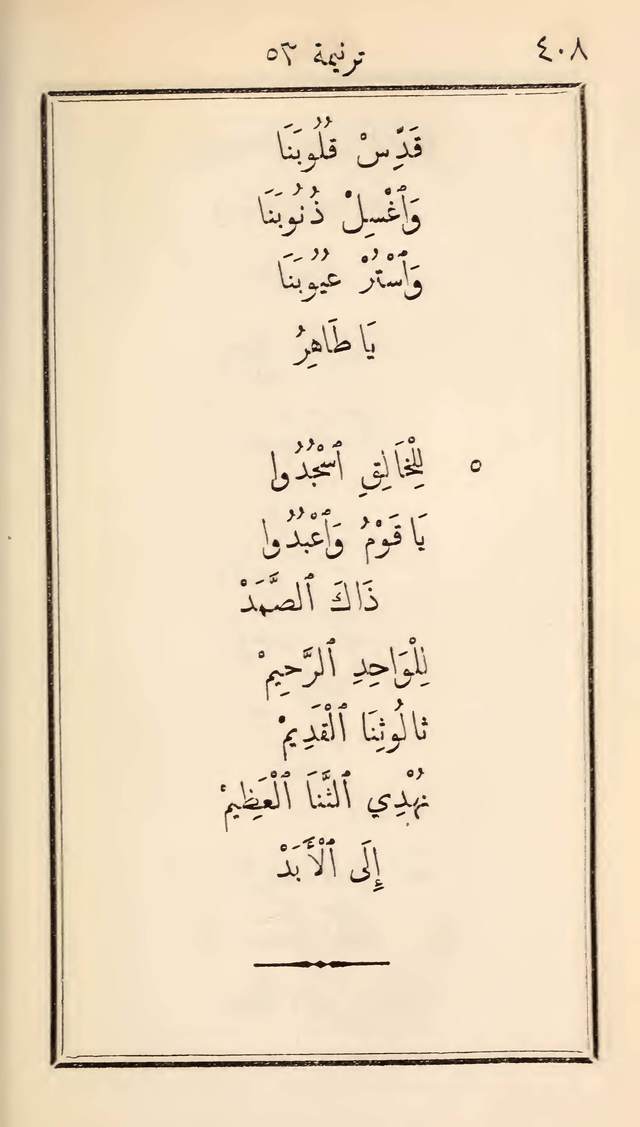 ٤٠٨ ترنيمة ٥٣
قَدِّسْ قُلُوبَنَا
وَٱغْسِلْ ذُنُوبَنَا
وَٱسْتُرْ عُيُوبَنَا
يَا طَاهِرُ
٥ لِلْخَالِقِ ٱسْجُدُوا
يَا قَوْمُ وَٱعْبُدُوا
ذَاكَ ٱلصَّمَدْ
لِلْوَاحِدِ ٱلرَّحِيمْ
ثَالُوثِنَا ٱلْقَدِيمْ
نُهْدِي ٱلثَّنَا ٱلْعَظِيمْ
إِلَى ٱلْأَبَدْ